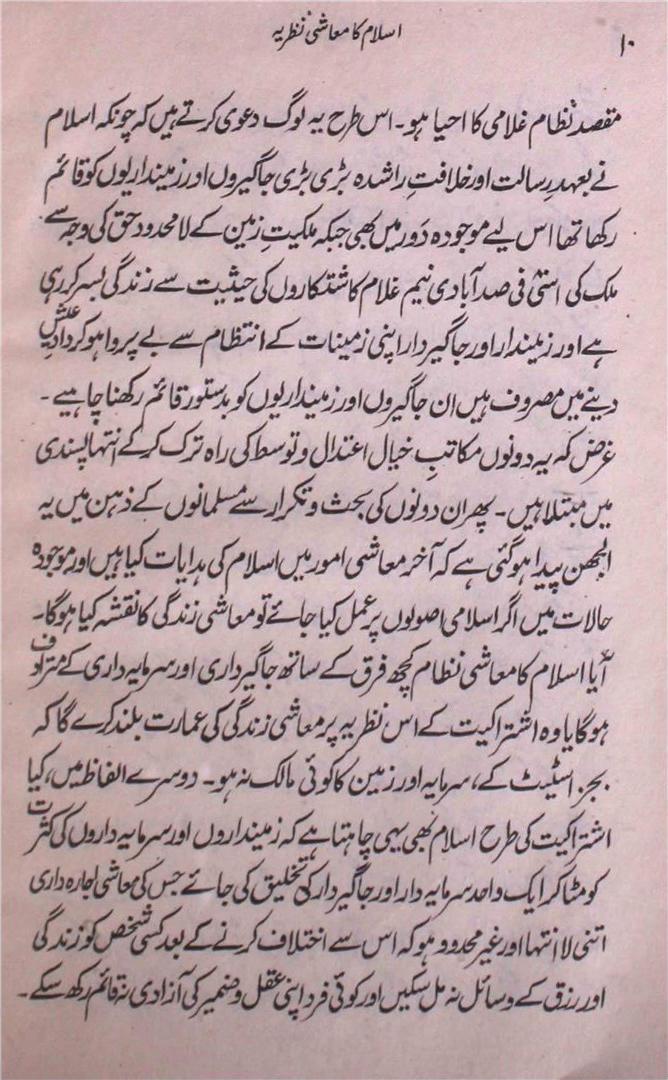 ۱۰
اسلام کا معاشی نظریہ
مقصد نظام غلامی کا احیا ہو۔ اس طرح یہ لوگ دعوی کرتے ہیں کہ چونکہ اسلام
نے بعہدِ رسالت اور خلافتِ راشدہ بڑی بڑی جاگیروں اور زمینداریوں کو قائم
رکھا تھا اس لیے موجودہ دَور میں بھی جبکہ ملکیتِ زمین کے لامحدود حق کی وجہ سے
ملک کی اسّی فی صد آبادی نیم غلام کاشتکاروں کی حیثیت سے زندگی بسر کر رہی
ہے اور زمیندار اور جاگیردار اپنی زمینات کے انتظام سے بے پروا ہو کر دادِ عیش
دینے میں مصروف ہیں ان جاگیروں اور زمینداریوں کو بدستور قائم رکھنا چاہیے۔
غرض کہ یہ دونوں مکاتبِ خیال اعتدال و توسط کی راہ ترک کر کے انتہا پسندی
میں مبتلا ہیں۔ پھر ان دونوں کی بحث و تکرار سے مسلمانوں کے ذہن میں یہ
الجھن پیدا ہو گئی ہے کہ آخر معاشی امور میں اسلام کی ہدایات کیا ہیں اور موجودہ
حالات میں اگر اسلامی اصولوں پر عمل کیا جائے تو معاشی زندگی کا نقشہ کیا ہوگا۔
آیا اسلام کا معاشی نظام کچھ فرق کے ساتھ جاگیرداری اور سرمایہ داری کے مترادف
ہوگا یا وہ اشتراکیت کے اس نظریہ پر معاشی زندگی کی عمارت بلند کرے گا کہ
بجز اسٹیٹ کے، سرمایہ اور زمین کا کوئی مالک نہ ہو۔ دوسرے الفاظ میں، کیا
اشتراکیت کی طرح اسلام بھی یہی چاہتا ہے کہ زمینداروں اور سرمایہ داروں کی کثرت
کو مٹا کر ایک واحد سرمایہ دار اور جاگیردار کی تخلیق کی جائے جس کی معاشی اجارہ داری
اتنی لا انتہا اور غیر محدود ہو کہ اس سے اختلاف کرنے کے بعد کسی شخص کو زندگی
اور رزق کے وسائل نہ مل سکیں اور کوئی فرد اپنی عقل و ضمیر کی آزادی نہ قائم رکھ سکے۔